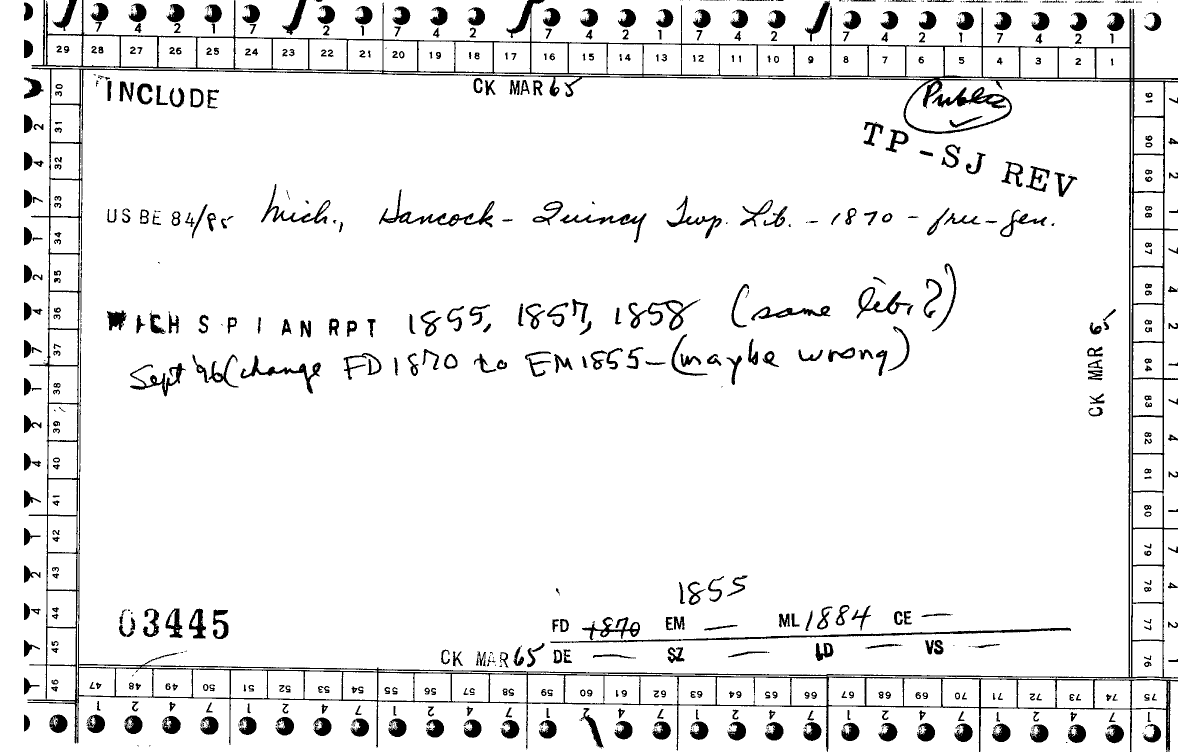 7 4 2 1 7 4 2 1 7 4 2 1 7 4 2 1 7 4 2 1 7 4 2 1 7 4 2 1
29 28 27 26 25 24 23 22 21 20 19 18 17 16 15 14 13 12 11 10 9 8 7 6 5 4 3 2 1
INCLUDE
CK MAR 65
Public
TP-SJ REV
US BE 84/85 Mich., Hancock - Quincy Twp. Lib. - 1870 - free - gen.
MICH S P I AN RPT 1855, 1857, 1858 (same libr?)
Sept '96 (change FD 1870 to EM 1855 - (maybe wrong)
CK MAR 65
1855
03445
FD 1870 EM — ML 1884 CE —
CK MAR 65 DE — SZ — LD — VS —
30 31 32 33 34 35 36 37 38 39 40 41 42 43 44 45 46
91 90 89 88 87 86 85 84 83 82 81 80 79 78 77 76 75
47 48 49 50 51 52 53 54 55 56 57 58 59 60 61 62 63 64 65 66 67 68 69 70 71 72 73 74
1 2 4 7 1 2 4 7 1 2 4 7 1 2 4 7 1 2 4 7 1 2 4 7 1 2 4 7